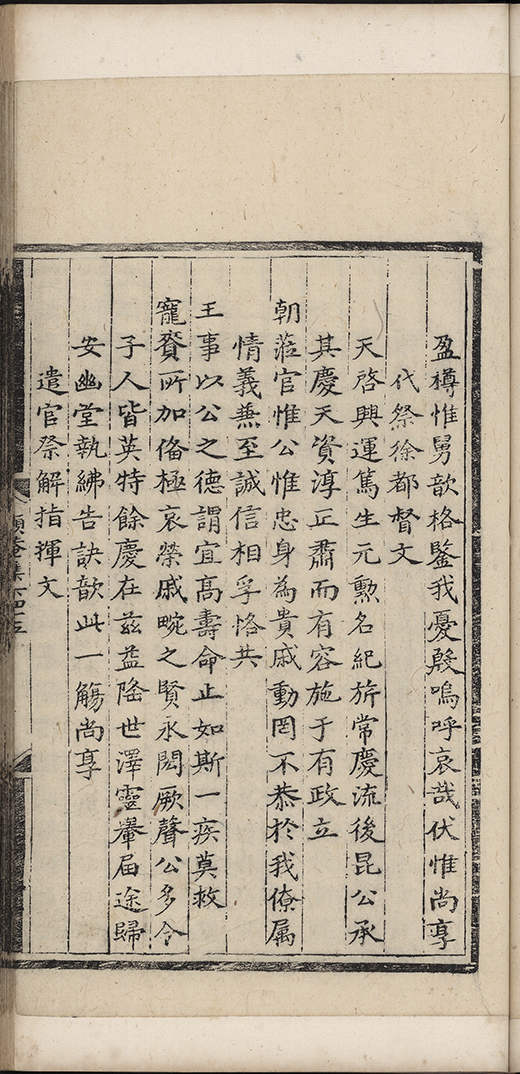 盈樽惟舅歆格鑒我憂殷嗚呼哀哉伏惟尚享
代祭徐都督文
天啓興運篤生元勲名紀旂常慶流後昆公承
其慶天資淳正肅而有容施于有政立
朝蒞官惟公惟忠身為貴戚動罔不恭於我僚属
情義蕪至誠信相孚恪共
王事以公之德謂宜髙壽命止如斯一疾莫救
寵賚所加俻極哀榮戚畹之賢永閟厥聲公多令
子人皆英特餘慶在兹益隆世澤靈轝届途歸
安幽堂執紼告訣歆此一觴尚享
遣官祭解指揮文
頥菴集